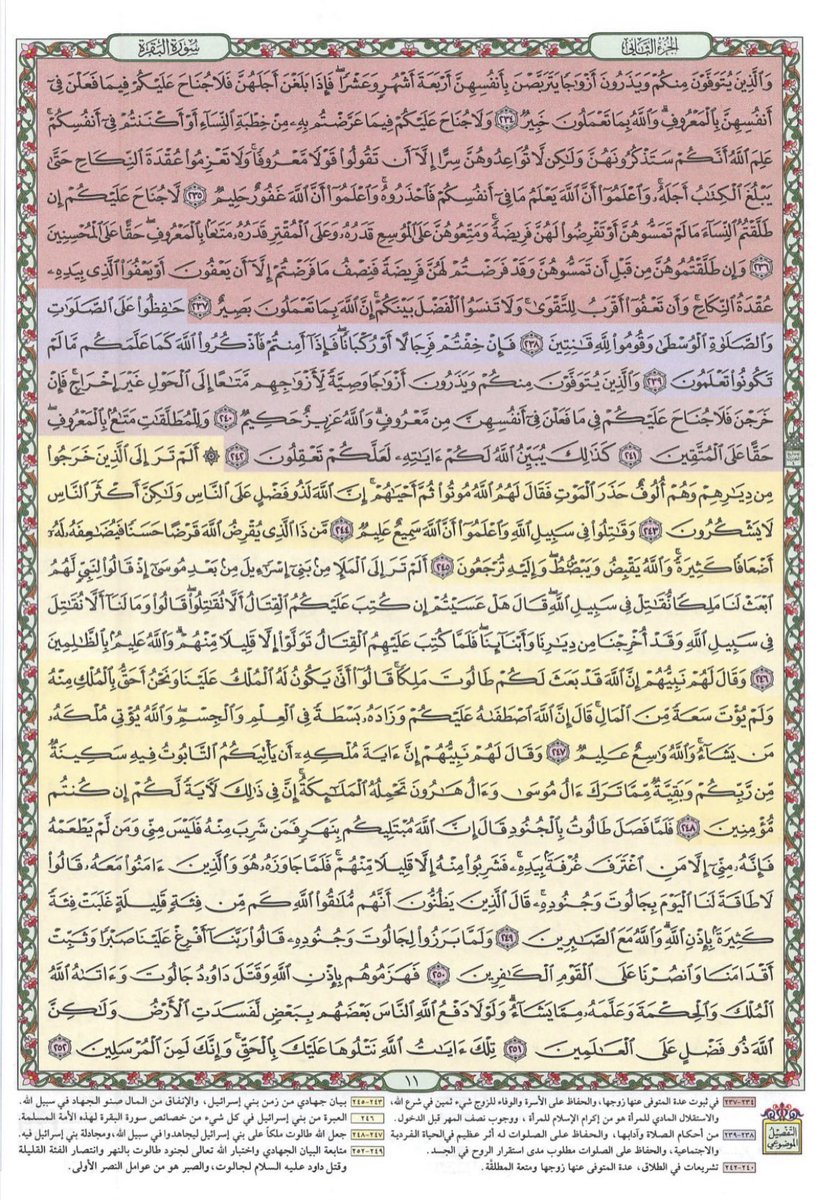 الجزء الثاني
سورة البقرة
وَالَّذِينَ يُتَوَفَّوْنَ مِنكُمْ وَيَذَرُونَ أَزْوَاجًا يَتَرَبَّصْنَ بِأَنفُسِهِنَّ أَرْبَعَةَ أَشْهُرٍ وَعَشْرًا ۖ فَإِذَا بَلَغْنَ أَجَلَهُنَّ فَلَا جُنَاحَ عَلَيْكُمْ فِيمَا فَعَلْنَ فِىٓ
أَنفُسِهِنَّ بِالْمَعْرُوفِ ۗ وَاللَّهُ بِمَا تَعْمَلُونَ خَبِيرٌ ٢٣٤ وَلَا جُنَاحَ عَلَيْكُمْ فِيمَا عَرَّضْتُم بِهِۦ مِنْ خِطْبَةِ النِّسَآءِ أَوْ أَكْنَنتُمْ فِىٓ أَنفُسِكُمْ ۚ
عَلِمَ اللَّهُ أَنَّكُمْ سَتَذْكُرُونَهُنَّ وَلَٰكِن لَّا تُوَاعِدُوهُنَّ سِرًّا إِلَّآ أَن تَقُولُوا قَوْلًا مَّعْرُوفًا ۚ وَلَا تَعْزِمُوا عُقْدَةَ النِّكَاحِ حَتَّىٰ
يَبْلُغَ الْكِتَٰبُ أَجَلَهُۥ ۚ وَاعْلَمُوٓا أَنَّ اللَّهَ يَعْلَمُ مَا فِىٓ أَنفُسِكُمْ فَاحْذَرُوهُ ۚ وَاعْلَمُوٓا أَنَّ اللَّهَ غَفُورٌ حَلِيمٌ ٢٣٥ لَّا جُنَاحَ عَلَيْكُمْ إِن
طَلَّقْتُمُ النِّسَآءَ مَا لَمْ تَمَسُّوهُنَّ أَوْ تَفْرِضُوا لَهُنَّ فَرِيضَةً ۚ وَمَتِّعُوهُنَّ عَلَى الْمُوسِعِ قَدَرُهُۥ وَعَلَى الْمُقْتِرِ قَدَرُهُۥ مَتَٰعًۢا بِالْمَعْرُوفِ ۖ حَقًّا عَلَى الْمُحْسِنِينَ
٢٣٦ وَإِن طَلَّقْتُمُوهُنَّ مِن قَبْلِ أَن تَمَسُّوهُنَّ وَقَدْ فَرَضْتُمْ لَهُنَّ فَرِيضَةً فَنِصْفُ مَا فَرَضْتُمْ إِلَّآ أَن يَعْفُونَ أَوْ يَعْفُوَا الَّذِى بِيَدِهِۦ
عُقْدَةُ النِّكَاحِ ۚ وَأَن تَعْفُوٓا أَقْرَبُ لِلتَّقْوَىٰ ۚ وَلَا تَنسَوُا الْفَضْلَ بَيْنَكُمْ ۚ إِنَّ اللَّهَ بِمَا تَعْمَلُونَ بَصِيرٌ ٢٣٧ حَٰفِظُوا عَلَى الصَّلَوَٰتِ
وَالصَّلَوٰةِ الْوُسْطَىٰ وَقُومُوا لِلَّهِ قَٰنِتِينَ ٢٣٨ فَإِنْ خِفْتُمْ فَرِجَالًا أَوْ رُكْبَانًا ۖ فَإِذَآ أَمِنتُمْ فَاذْكُرُوا اللَّهَ كَمَا عَلَّمَكُم مَّا لَمْ
تَكُونُوا تَعْلَمُونَ ٢٣٩ وَالَّذِينَ يُتَوَفَّوْنَ مِنكُمْ وَيَذَرُونَ أَزْوَاجًا وَصِيَّةً لِّأَزْوَاجِهِم مَّتَٰعًا إِلَى الْحَوْلِ غَيْرَ إِخْرَاجٍ ۚ فَإِنْ
خَرَجْنَ فَلَا جُنَاحَ عَلَيْكُمْ فِى مَا فَعَلْنَ فِىٓ أَنفُسِهِنَّ مِن مَّعْرُوفٍ ۗ وَاللَّهُ عَزِيزٌ حَكِيمٌ ٢٤٠ وَلِلْمُطَلَّقَٰتِ مَتَٰعٌۢ بِالْمَعْرُوفِ ۖ
حَقًّا عَلَى الْمُتَّقِينَ ٢٤١ كَذَٰلِكَ يُبَيِّنُ اللَّهُ لَكُمْ ءَايَٰتِهِۦ لَعَلَّكُمْ تَعْقِلُونَ ٢٤٢ ۞ أَلَمْ تَرَ إِلَى الَّذِينَ خَرَجُوا
مِن دِيَٰرِهِمْ وَهُمْ أُلُوفٌ حَذَرَ الْمَوْتِ فَقَالَ لَهُمُ اللَّهُ مُوتُوا ثُمَّ أَحْيَٰهُمْ ۚ إِنَّ اللَّهَ لَذُو فَضْلٍ عَلَى النَّاسِ وَلَٰكِنَّ أَكْثَرَ النَّاسِ
لَا يَشْكُرُونَ ٢٤٣ وَقَٰتِلُوا فِى سَبِيلِ اللَّهِ وَاعْلَمُوٓا أَنَّ اللَّهَ سَمِيعٌ عَلِيمٌ ٢٤٤ مَّن ذَا الَّذِى يُقْرِضُ اللَّهَ قَرْضًا حَسَنًا فَيُضَٰعِفَهُۥ لَهُۥٓ
أَضْعَافًا كَثِيرَةً ۚ وَاللَّهُ يَقْبِضُ وَيَبْصُۜطُ وَإِلَيْهِ تُرْجَعُونَ ٢٤٥ أَلَمْ تَرَ إِلَى الْمَلَإِ مِنۢ بَنِىٓ إِسْرَٰٓءِيلَ مِنۢ بَعْدِ مُوسَىٰٓ إِذْ قَالُوا لِنَبِىٍّ لَّهُمُ
ابْعَثْ لَنَا مَلِكًا نُّقَٰتِلْ فِى سَبِيلِ اللَّهِ ۖ قَالَ هَلْ عَسَيْتُمْ إِن كُتِبَ عَلَيْكُمُ الْقِتَالُ أَلَّا تُقَٰتِلُوا ۖ قَالُوا وَمَا لَنَآ أَلَّا نُقَٰتِلَ
فِى سَبِيلِ اللَّهِ وَقَدْ أُخْرِجْنَا مِن دِيَٰرِنَا وَأَبْنَآئِنَا ۖ فَلَمَّا كُتِبَ عَلَيْهِمُ الْقِتَالُ تَوَلَّوْا إِلَّا قَلِيلًا مِّنْهُمْ ۗ وَاللَّهُ عَلِيمٌۢ بِالظَّٰلِمِينَ
٢٤٦ وَقَالَ لَهُمْ نَبِيُّهُمْ إِنَّ اللَّهَ قَدْ بَعَثَ لَكُمْ طَالُوتَ مَلِكًا ۚ قَالُوٓا أَنَّىٰ يَكُونُ لَهُ الْمُلْكُ عَلَيْنَا وَنَحْنُ أَحَقُّ بِالْمُلْكِ مِنْهُ
وَلَمْ يُؤْتَ سَعَةً مِّنَ الْمَالِ ۚ قَالَ إِنَّ اللَّهَ اصْطَفَىٰهُ عَلَيْكُمْ وَزَادَهُۥ بَسْطَةً فِى الْعِلْمِ وَالْجِسْمِ ۖ وَاللَّهُ يُؤْتِى مُلْكَهُۥ
مَن يَشَآءُ ۚ وَاللَّهُ وَٰسِعٌ عَلِيمٌ ٢٤٧ وَقَالَ لَهُمْ نَبِيُّهُمْ إِنَّ ءَايَةَ مُلْكِهِۦٓ أَن يَأْتِيَكُمُ التَّابُوتُ فِيهِ سَكِينَةٌ
مِّن رَّبِّكُمْ وَبَقِيَّةٌ مِّمَّا تَرَكَ ءَالُ مُوسَىٰ وَءَالُ هَٰرُونَ تَحْمِلُهُ الْمَلَٰٓئِكَةُ ۚ إِنَّ فِى ذَٰلِكَ لَءَايَةً لَّكُمْ إِن كُنتُم
مُّؤْمِنِينَ ٢٤٨ فَلَمَّا فَصَلَ طَالُوتُ بِالْجُنُودِ قَالَ إِنَّ اللَّهَ مُبْتَلِيكُم بِنَهَرٍ فَمَن شَرِبَ مِنْهُ فَلَيْسَ مِنِّى وَمَن لَّمْ يَطْعَمْهُ
فَإِنَّهُۥ مِنِّىٓ إِلَّا مَنِ اغْتَرَفَ غُرْفَةًۢ بِيَدِهِۦ ۚ فَشَرِبُوا مِنْهُ إِلَّا قَلِيلًا مِّنْهُمْ ۚ فَلَمَّا جَاوَزَهُۥ هُوَ وَالَّذِينَ ءَامَنُوا مَعَهُۥ قَالُوا
لَا طَاقَةَ لَنَا الْيَوْمَ بِجَالُوتَ وَجُنُودِهِۦ ۚ قَالَ الَّذِينَ يَظُنُّونَ أَنَّهُم مُّلَٰقُوا اللَّهِ كَم مِّن فِئَةٍ قَلِيلَةٍ غَلَبَتْ فِئَةً
كَثِيرَةًۢ بِإِذْنِ اللَّهِ ۗ وَاللَّهُ مَعَ الصَّٰبِرِينَ ٢٤٩ وَلَمَّا بَرَزُوا لِجَالُوتَ وَجُنُودِهِۦ قَالُوا رَبَّنَآ أَفْرِغْ عَلَيْنَا صَبْرًا وَثَبِّتْ
أَقْدَامَنَا وَانصُرْنَا عَلَى الْقَوْمِ الْكَٰفِرِينَ ٢٥٠ فَهَزَمُوهُم بِإِذْنِ اللَّهِ وَقَتَلَ دَاوُۥدُ جَالُوتَ وَءَاتَىٰهُ اللَّهُ
الْمُلْكَ وَالْحِكْمَةَ وَعَلَّمَهُۥ مِمَّا يَشَآءُ ۗ وَلَوْلَا دَفْعُ اللَّهِ النَّاسَ بَعْضَهُم بِبَعْضٍ لَّفَسَدَتِ الْأَرْضُ وَلَٰكِنَّ
اللَّهَ ذُو فَضْلٍ عَلَى الْعَٰلَمِينَ ٢٥١ تِلْكَ ءَايَٰتُ اللَّهِ نَتْلُوهَا عَلَيْكَ بِالْحَقِّ ۚ وَإِنَّكَ لَمِنَ الْمُرْسَلِينَ ٢٥٢
١١
التفصيل الموضوعي
٢٣٤-٢٣٧ في ثبوت عدة المتوفى عنها زوجها، والحفاظ على الأسرة والوفاء للزوج شيء ثمين في شرع الله،
والاستقلال المادي للمرأة هو من إكرام الإسلام للمرأة ، ووجوب نصف المهر قبل الدخول.
٢٣٨-٢٣٩ من أحكام الصلاة وآدابها، والحفاظ على الصلوات له أثر عظيم في الحياة الفردية
والاجتماعية، والحفاظ على الصلوات مطلوب مدى استقرار الروح في الجسد.
٢٤٠-٢٤٢ تشريعات في الطلاق، عدة المتوفى عنها زوجها ومتعة المطلقة.
٢٤٣-٢٤٥ بيان جهادي من زمن بني إسرائيل، والإنفاق من المال صنو الجهاد في سبيل الله.
٢٤٦ العبرة من بني إسرائيل في كل شيء من خصائص سورة البقرة لهذه الأمة المسلمة.
٢٤٧-٢٤٨ جعل الله طالوت ملكاً على بني إسرائيل ليجاهدوا في سبيل الله، ومجادلة بني إسرائيل فيه.
٢٤٩-٢٥٢ متابعة البيان الجهادي واختبار الله تعالى لجنود طالوت بالنهر وانتصار الفئة القليلة
وقتل داود عليه السلام لجالوت، والصبر هو من عوامل النصر الأولى.